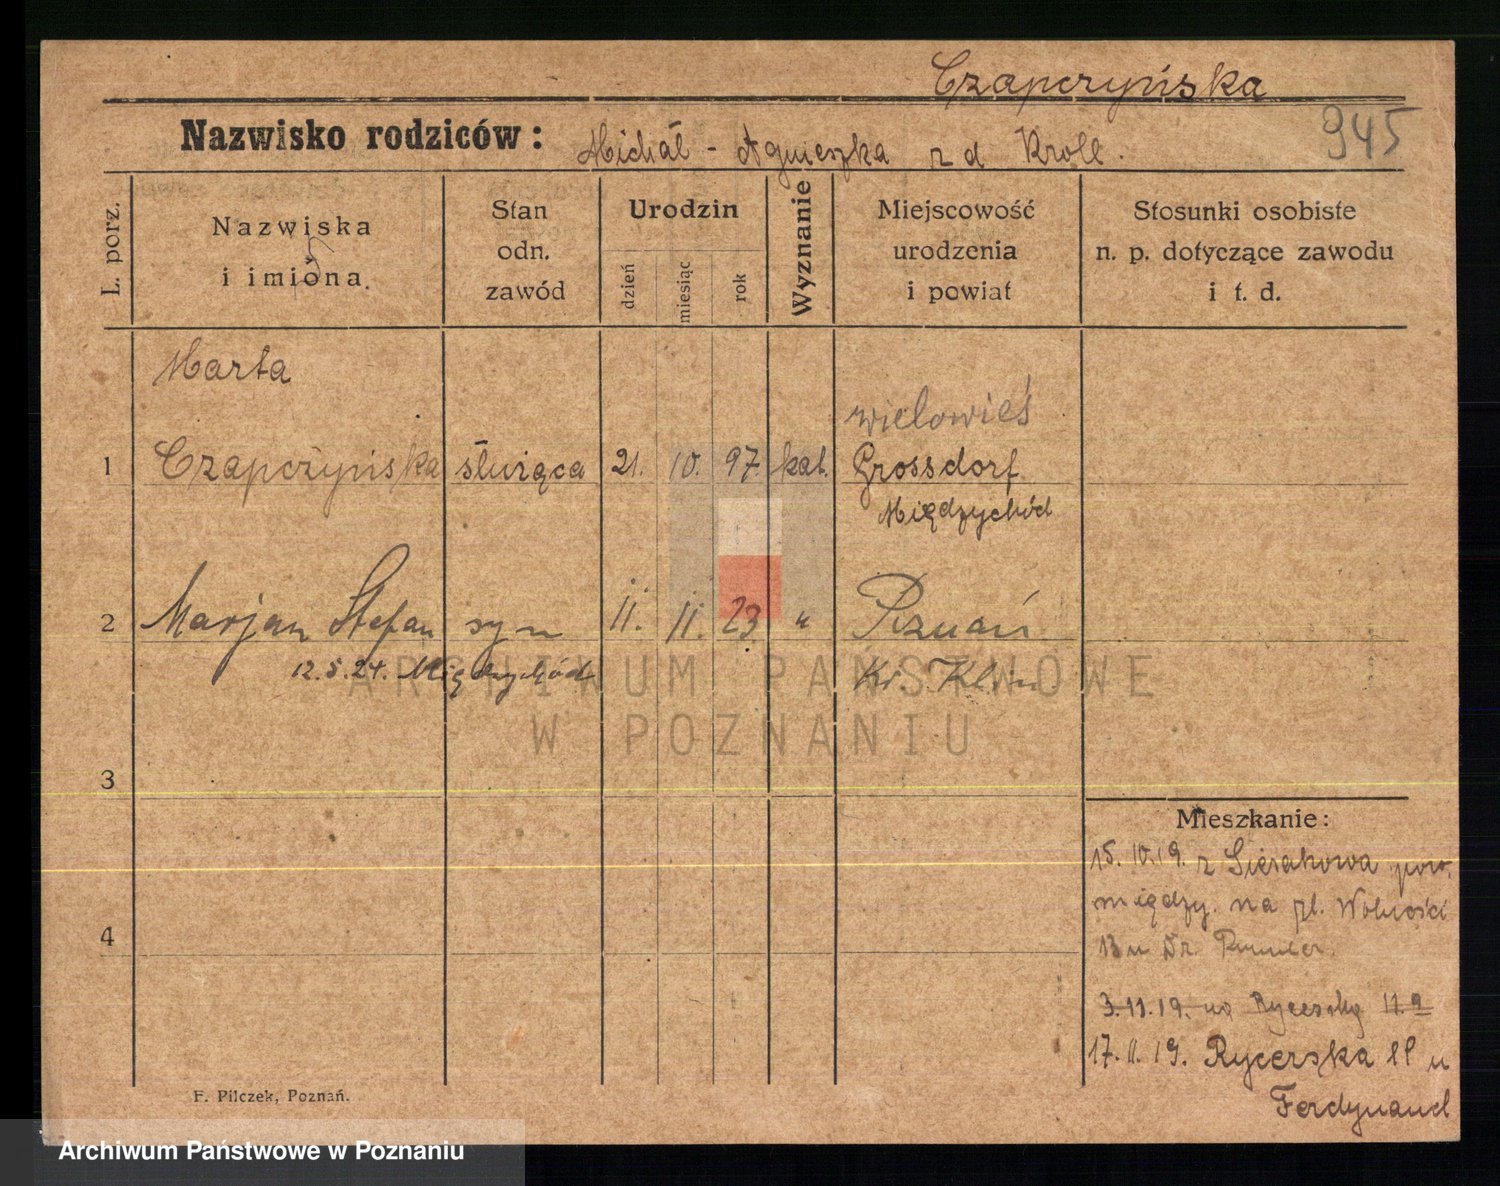 Czapczyńska
Nazwisko rodziców: Michał - Agnieszka z d Kroll.
945
L. porz.
Nazwiska
i imiona.
Stan
odn.
zawód
Urodzin
dzień
miesiąc
rok
Wyznanie
Miejscowość
urodzenia
i powiat
Stosunki osobiste
n. p. dotyczące zawodu
i t. d.
Marta
wielowieś
1 Czapczyńska służąca 21. 10. 97. kat. Grossdorf
Międzychód
2 Marjan Stefan syn 11. 11. 23. " Poznań
12.5.24. Międzychód Kr. Klin
3
4
Mieszkanie:
15.10.19. z Sierakowa pow.
między. na pl. Wolności
13 u Dr.
3.11.19. na 11.a
17.11.19. Rycerska 11 u
Ferdynand
F. Pilczek, Poznań.
ARCHIWUM PAŃSTWOWE
W POZNANIU
Archiwum Państwowe w Poznaniu